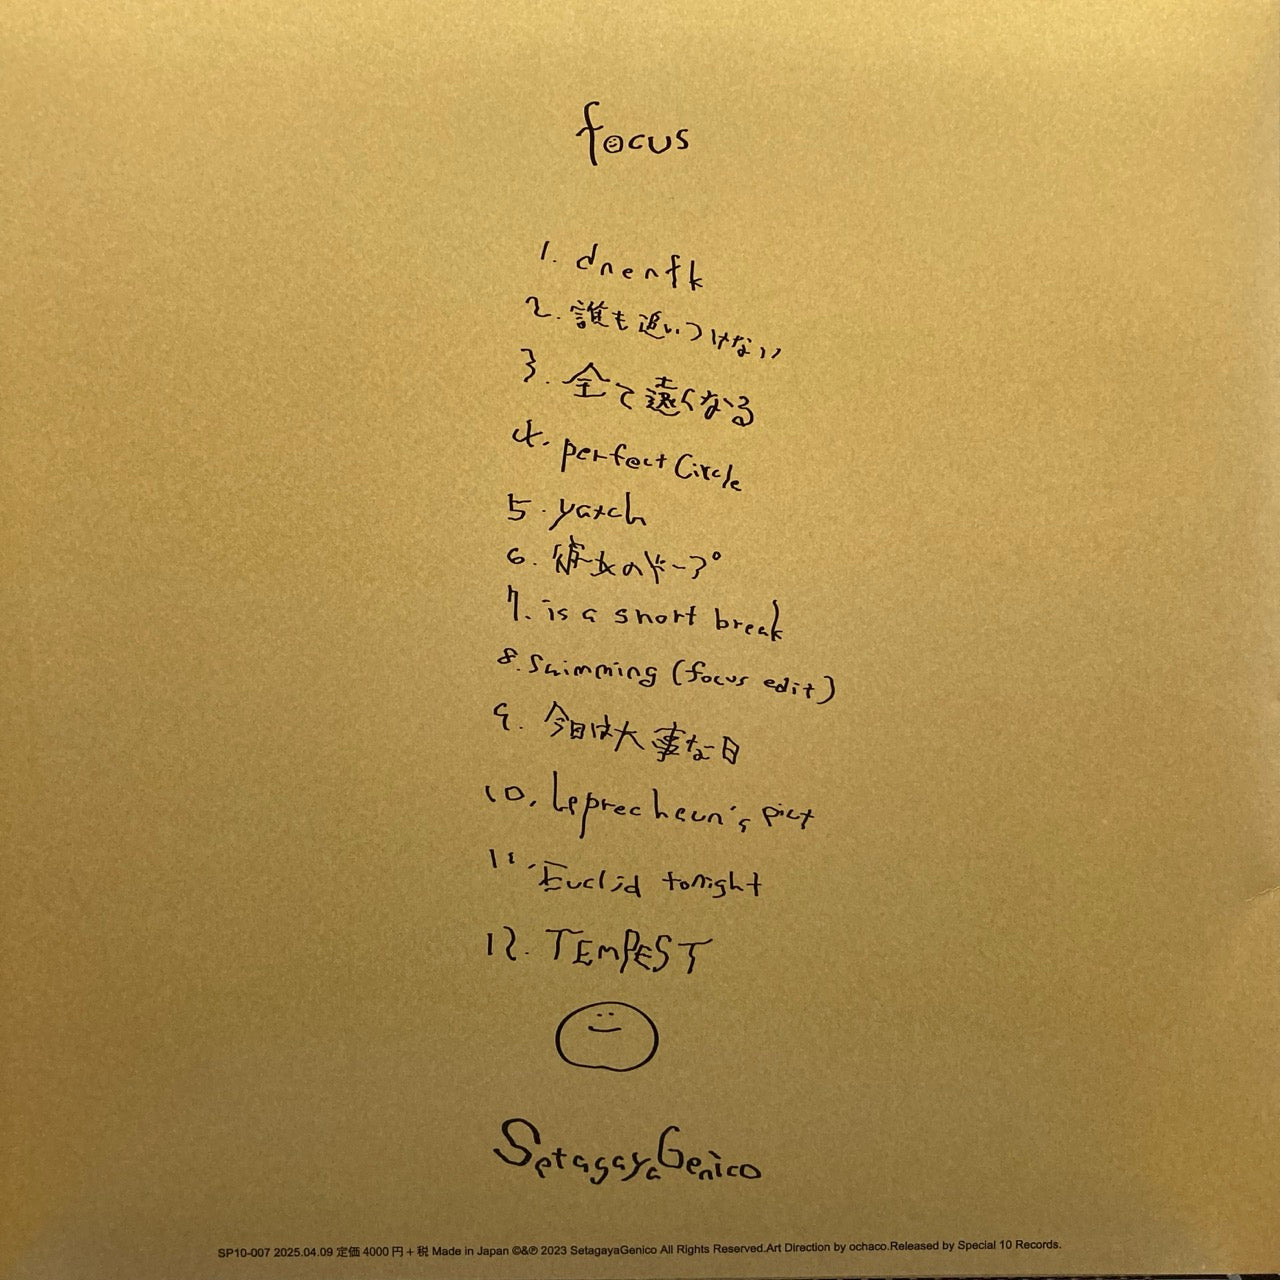 focus
1. dnenfk
2. 誰も追いつけない
3. 全て遠くなる
4. perfect Circle
5. yatch
6. 彼女のドープ
7. is a short break
8. Swimming (focus edit)
9. 今日は大事な日
10. Leprechaun's pict
11. Euclid tonight
12. TEMPEST
SetagayaGenico
SP10-007 2025.04.09 定価 4000 円 + 税 Made in Japan ©&℗ 2023 SetagayaGenico All Rights Reserved.Art Direction by ochaco.Released by Special 10 Records.